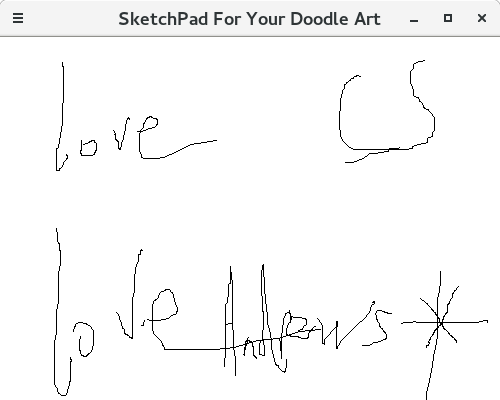 SketchPad For Your Doodle Art
love CS
love